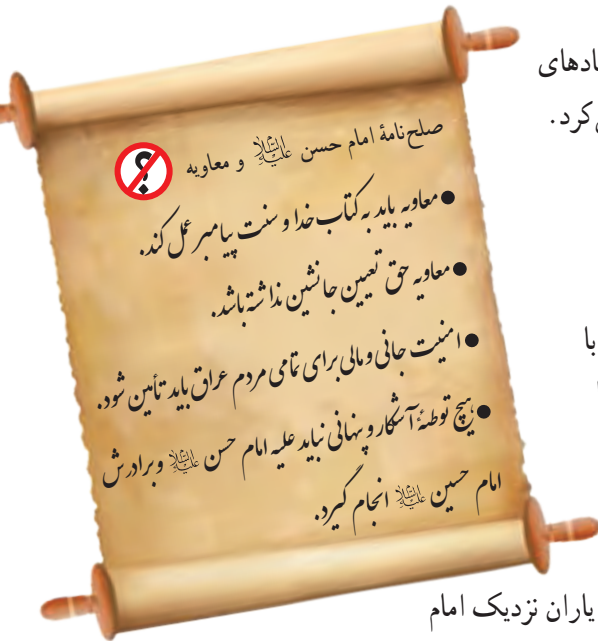 ادهای
کرد.
صلح‌نامهٔ امام حسن علیه‌السلام و معاویه
● معاویه باید به کتاب خدا و سنت پیامبر عمل کند.
● معاویه حق تعیین جانشین نداشته باشد.
● امنیت جانی و مالی برای تمامی مردم عراق باید تأمین شود.
● هیچ توطئهٔ آشکار و پنهانی نباید علیه امام حسن علیه‌السلام و برادرش
امام حسین علیه‌السلام انجام گیرد.
با
یاران نزدیک امام